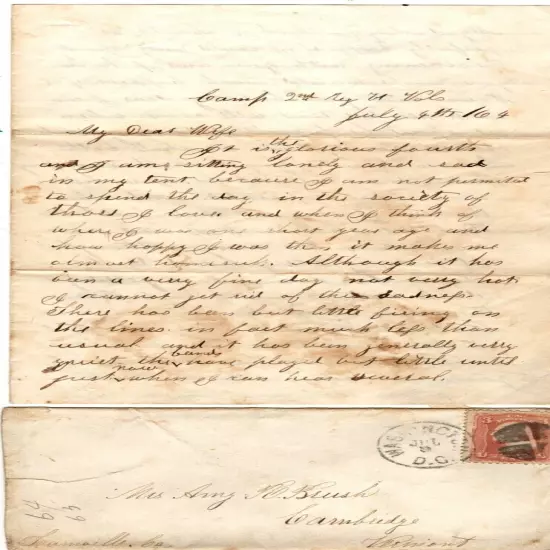 Camp 2nd Reg Vt Vols
July 4th 1864
My Dear Wife
It is the glorious fourth
and I am sitting lonely and sad
in my tent because I am not permitted
to spend the day in the society of
those I love and when I think of
where I was one short year ago and
how happy I was then it makes me
almost homesick. Although it has
been a very fine day not very hot
I cannot get rid of the sadness.
There has been but little firing on
the lines in fact much less than
usual and it has been generally very
quiet, the bands have played but little until
just now when I can hear several.
WASHINGTON
JUL
D.C.
Mrs Amy E Brush
Cambridge
Lamoille Co Vermont